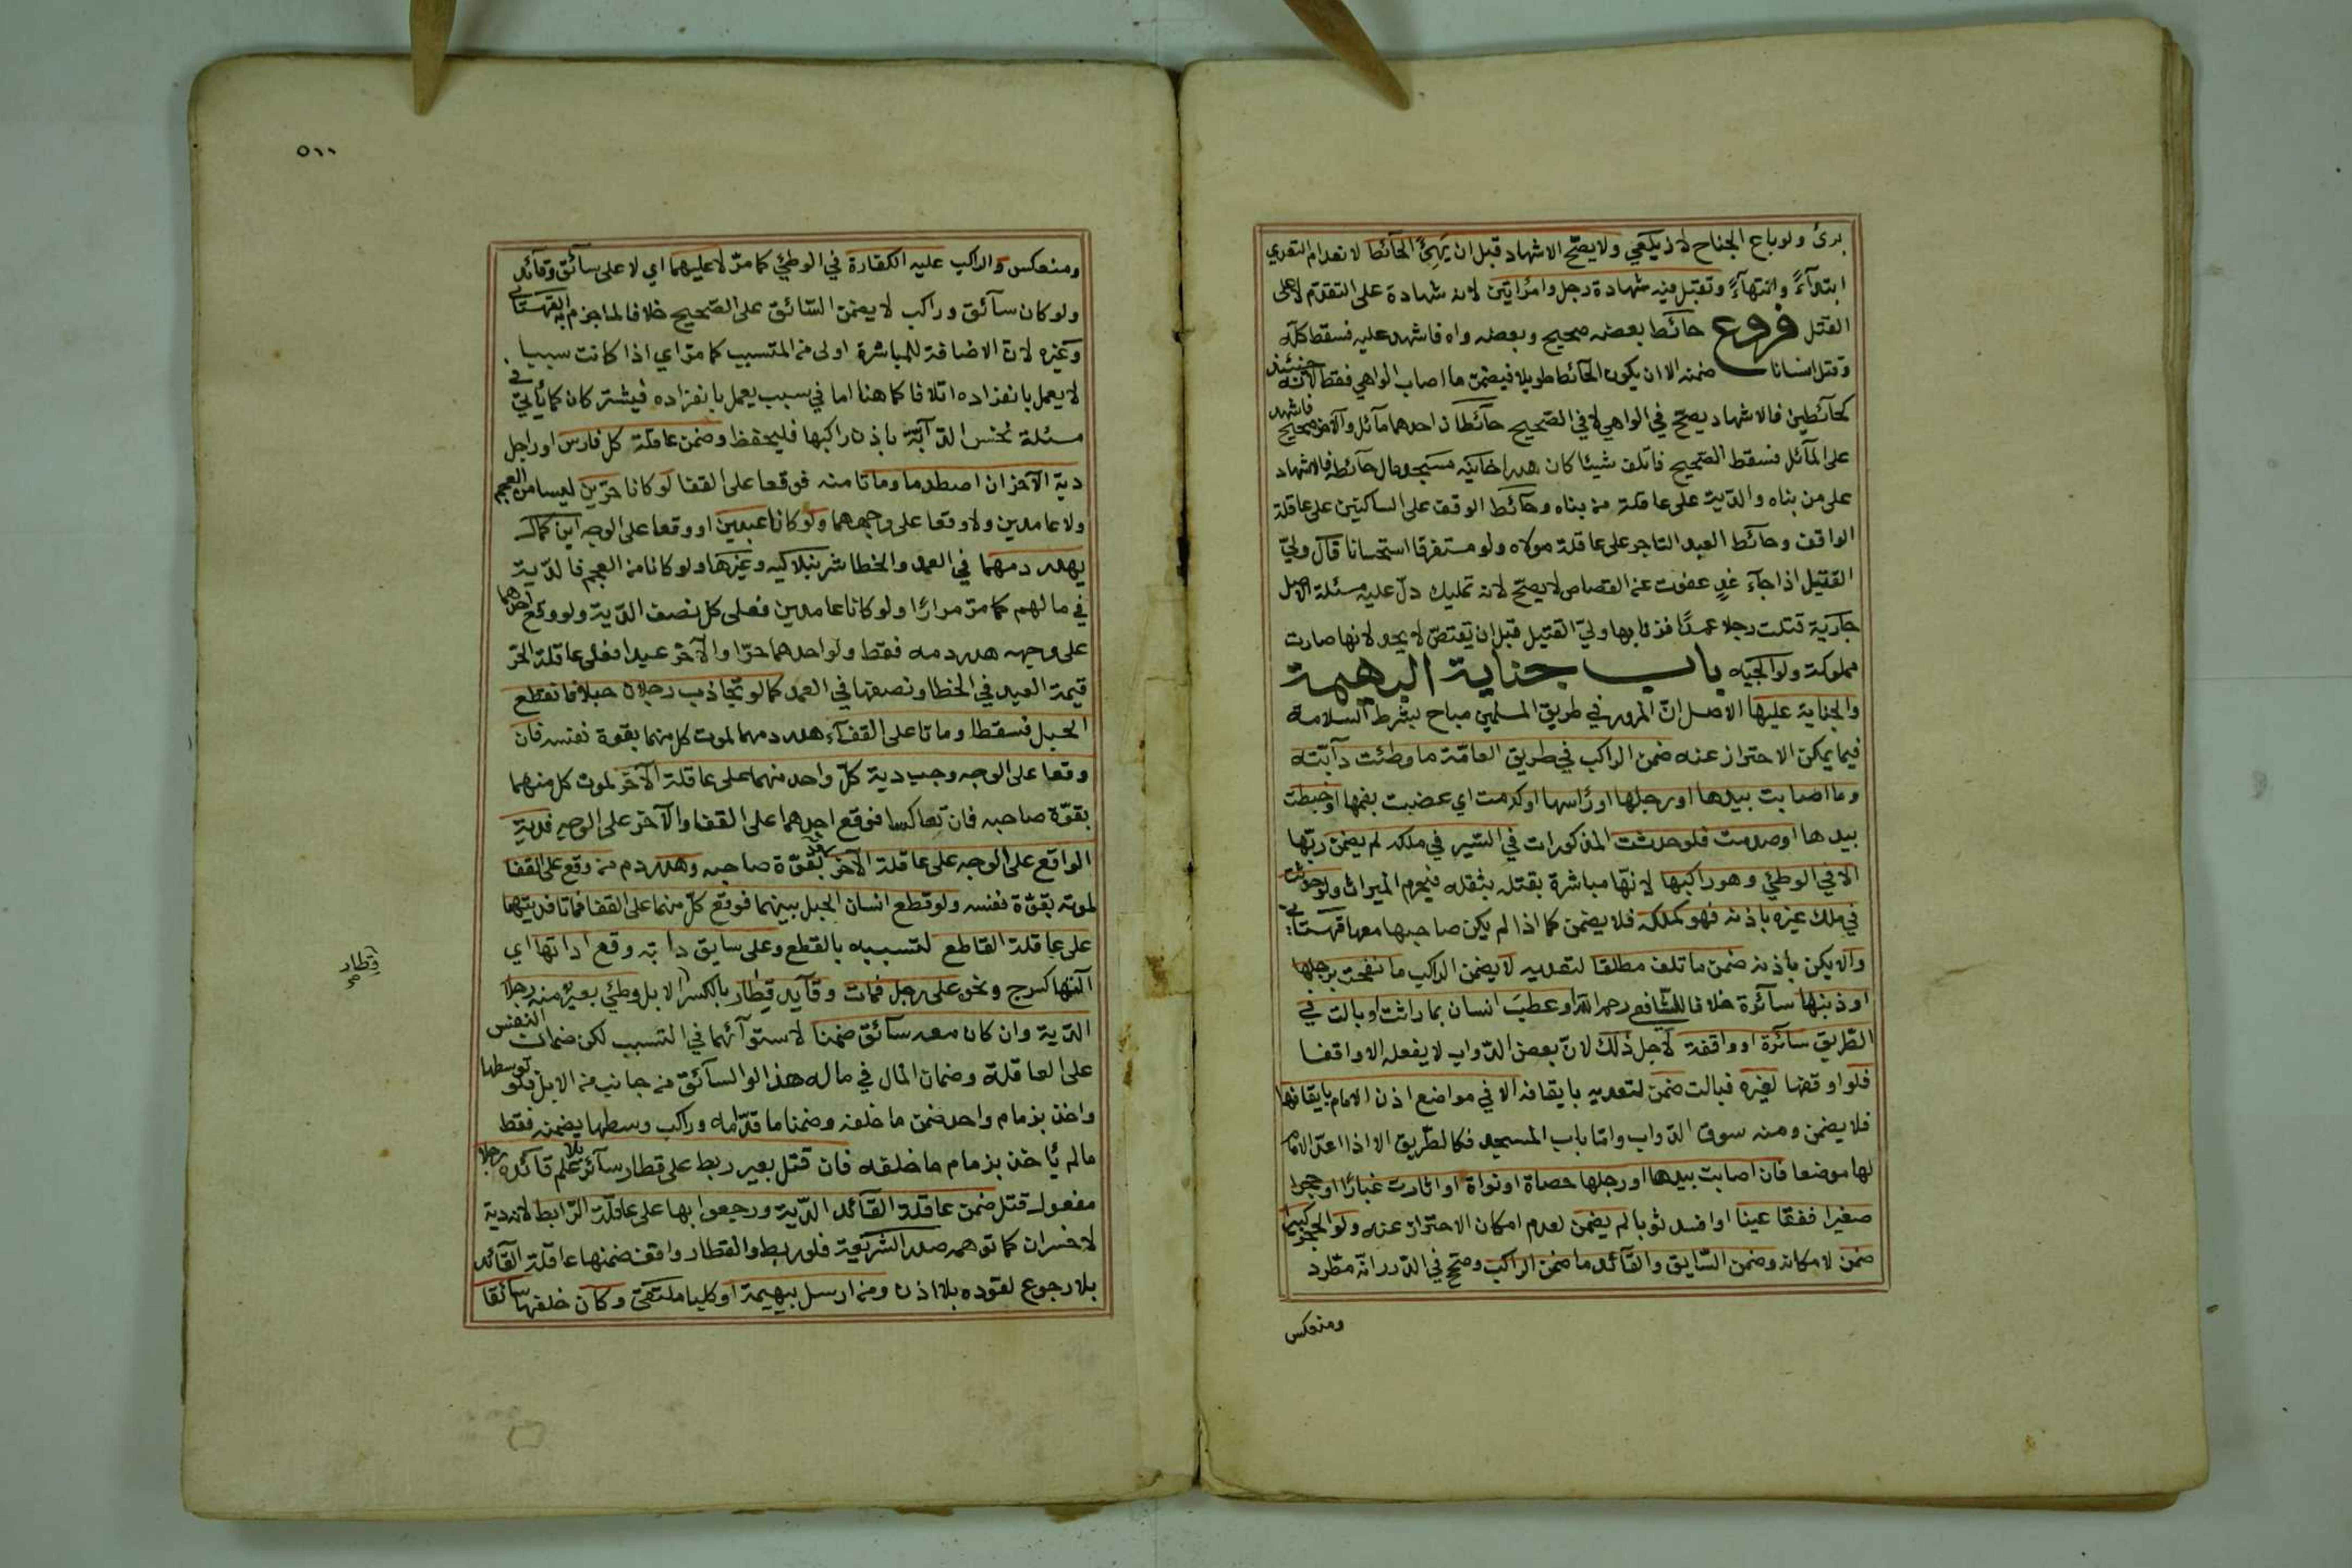 برئ ولو باع الجناح لا زيلعي ولا يصح الاشهاد قبل ان يهئ الحآئط لانعدام التعدي
ابتدآءً وانتهآءً وتقبل فيه شهادة رجل وامرأتين لانه شهادة على التقدم لا على
القتل فروع حآئط بعضه صحيح وبعضه واه فاشهد عليه فسقط كله
وقتل انسانا ضمنه الا ان يكون الحآئط طويلا فيضمن ما اصاب الواهي فقط لانه حينئذ
كحآئطين فالاشهاد يصح في الواهي لا في الصحيح حآئطان احدهما مآئل والآخر صحيح فاشهد
على المآئل فسقط الصحيح فاتلف شيئا كان هدرا خانيه مسجد مال حآئطه فالاشهاد
على من بناه والدية على عاقلة من بناه وحآئط الوقف على المساكين على عاقلة
الواقف وحآئط العبد التاجر على عاقلة مولاه ولو مستغرقا استحسانا قال وليّ
القتيل اذا جآء غدٍ عفوت عن القصاص لا يصح لانه تمليك دلّ عليه مسئلة الاصل
جارية قتلت رجلا عمدًا فزنا بها وليّ القتيل قبل ان يقتصّ لا يحد لانها صارت
مملوكة ولوالجيه باب جناية البهيمة
والجناية عليها الاصل انّ المرور في طريق المسلمين مباح بشرط السلامة
فيما يمكن الاحتراز عنه ضمن الراكب في طريق العامّة ما وطئت دآبّته
وما اصابت بيدها او رجلها او رأسها او كدمت اي عضبت بفمها او خبطت
بيدها او صدمت فلو حدثت المذكورات في السّير في ملكه لم يضمن ربّها
الا في الوطئ وهو راكبها لانّها مباشرة بقتله بثقله فيحرم الميراث ولو حدثت
في ملك غيره باذنه فهو كملكه فلا يضمن كما اذا لم يكن صاحبها معها قهستاني
والا يكن باذنه ضمن ما تلف مطلقا لتعديه لا يضمن الراكب ما نفحت برجلها
او ذنبها سآئرة خلافا للشّافعي رحمه الله او عطب انسان بما راثت او بالت في
الطّريق سآئرة او واقفة لاجل ذلك لانّ بعض الدّواب لا يفعله الا واقفا
فلو اوقفها لغيره فبالت ضمن لتعديه بايقافه الا في مواضع اذن الامام بايقافها
فلا يضمن ومنه سوق الدّواب وامّا باب المسجد فكالطّريق الا اذا اعدّ الامام
لها موضعا فان اصابت بيدها او رجلها حصاة او نواة او اثارت غبارًا او حجرا
صغيرا ففقا عينا او افسد ثوبا لم يضمن لعدم امكان الاحتراز عنه ولو الحجر كبيرا
ضمن لامكانه وضمن السّايق والقآئد ما ضمن الراكب وصحح في الدّرر انّه مطّرد
ومنعكس
٥١١
ومنعكس والراكب عليه الكفارة في الوطئ كما مرّ لا عليهما اي لا على سآئق وقآئد
ولو كان سآئق وراكب لا يضمن السّآئق على الصّحيح خلافا لما جزم به القهستاني
وغيره لانّ الاضافة للمباشرة اولى من المتسبب كما مرّ اي اذا كانت سببا
لا يعمل بانفراده اتلافا كما هنا اما في سبب يعمل بانفراده فيشتركان كما يأتي في
مسئلة نخس الدّآبّة باذن راكبها فليحفظ وضمن عاقلة كل فارس او راجل
دية الآخر ان اصطدما وماتا منه فوقعا على القفا لو كانا حرّين ليسا من العجم
ولا عامدين ولا وقعا على وجههما ولو كانا عبدين او وقعا على الوجه ابن كمال
يهدر دمهما في العمد والخطا شرنبلاليه وغيرها ولو كانا من العجم فالدّية
في مالهم كما مرّ مرارًا ولو كانا عامدين فعلى كل نصف الدّية ولو وقع احدهما
على وجهه هدر دمه فقط ولو احدهما حرّا والآخر عبدا فعلى عاقلة الحرّ
قيمة العبد في الخطا ونصفها في العمد كما لو تجاذب رجلان حبلا فانقطع
الحبل فسقطا وماتا على القفآء هدر دمهما لموت كل منهما بقوة نفسه فان
وقعا على الوجه وجب دية كلّ واحد منهما على عاقلة الآخر لموت كل منهما
بقوّة صاحبه فان تعاكسا فوقع احدهما على القفا والآخر على الوجه فدية
الواقع على الوجه على عاقلة الآخر بقوّة صاحبه وهدر دم من وقع على القفا
لموته بقوّة نفسه ولو قطع انسان الحبل بينهما فوقع كلّ منهما على القفا فماتا فديتهما
على عاقلة القاطع لتسببه بالقطع وعلى سايق دابّه وقع اداتها اي
آلتها كسرج ونحوه على رجل فمات وقآيد قِطار بالكسر الابل وطئ بعير منه رجلا
الدّية وان كان معه سآئق ضمنا لاستوآئهما في التسبب لكن ضمان النفس
على العاقلة وضمان المال في ماله هذا لو السآئق من جانب من الابل فلو توسطها
واخذ بزمام واحد ضمن ما خلفه وضمنا ما قدّامه وراكب وسطها يضمنه فقط
ما لم يأخذ بزمام ما خلفه فان قتل بعير ربط على قطار سآئر بلا علم قآئده رجلا
مفعول قتل ضمن عاقلة القآئد الدّية ورجعوا بها على عاقلة الرّابط لانه دية
لا خسران كما توهمه صدر الشّريعة فلو ربط والقطار واقف ضمنها عاقلة القآئد
بلا رجوع لقوده بلا اذن ومن ارسل بهيمة او كلبا ملتقى وكان خلفها سآئقا
قِطار
صح